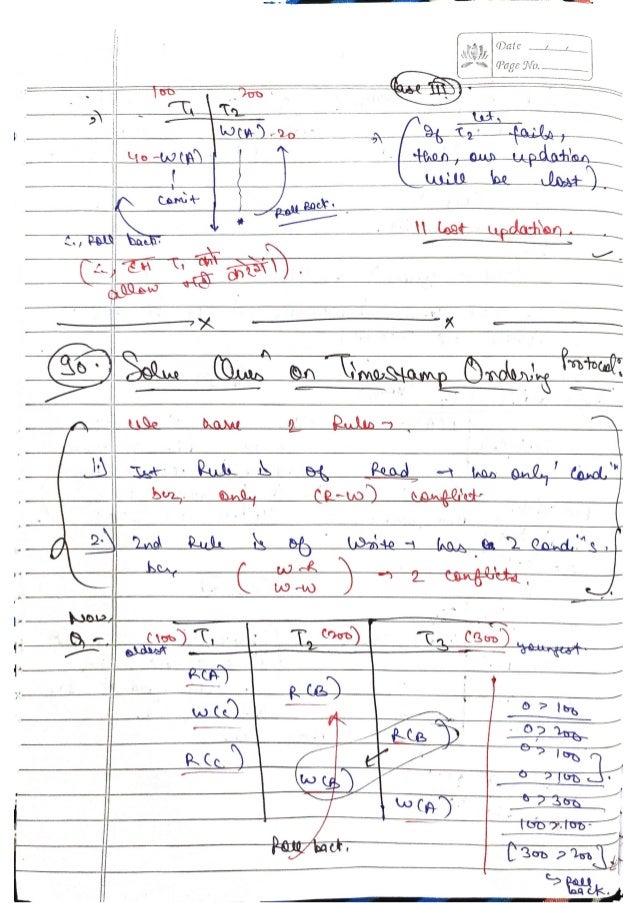 Date
Page No.
Case III
100 200
T1 T2
W(A)-20
40-W(A)
Comit
Roll Back.
∴, Roll back.
(∴, हम T1 को
allow नही करेंगे।).
let,
(If T2 fails,
then, our updation
will be lost).
|| Lost updation.
x x
90. Solve Quesn on Timestamp Ordering Protocol:
We have 2 Rules →
1.) Ist Rule is of Read → has only 1 Condin
bcz, only (R-W) conflict.
2.) 2nd Rule is of Write → has 2 Condins.
bcz, (W-R
W-W) → 2 conflicts.
Now,
Q- (100) T1 T2 (200) T3 (300)
oldest youngest
R(A)
R(B)
W(C)
R(B)
R(C)
W(B)
W(A)
Roll back.
0 > 100
0 > 200
0 > 100
0 > 100
0 > 300
100 > 100
[300 > 200]
↳ Roll
back.